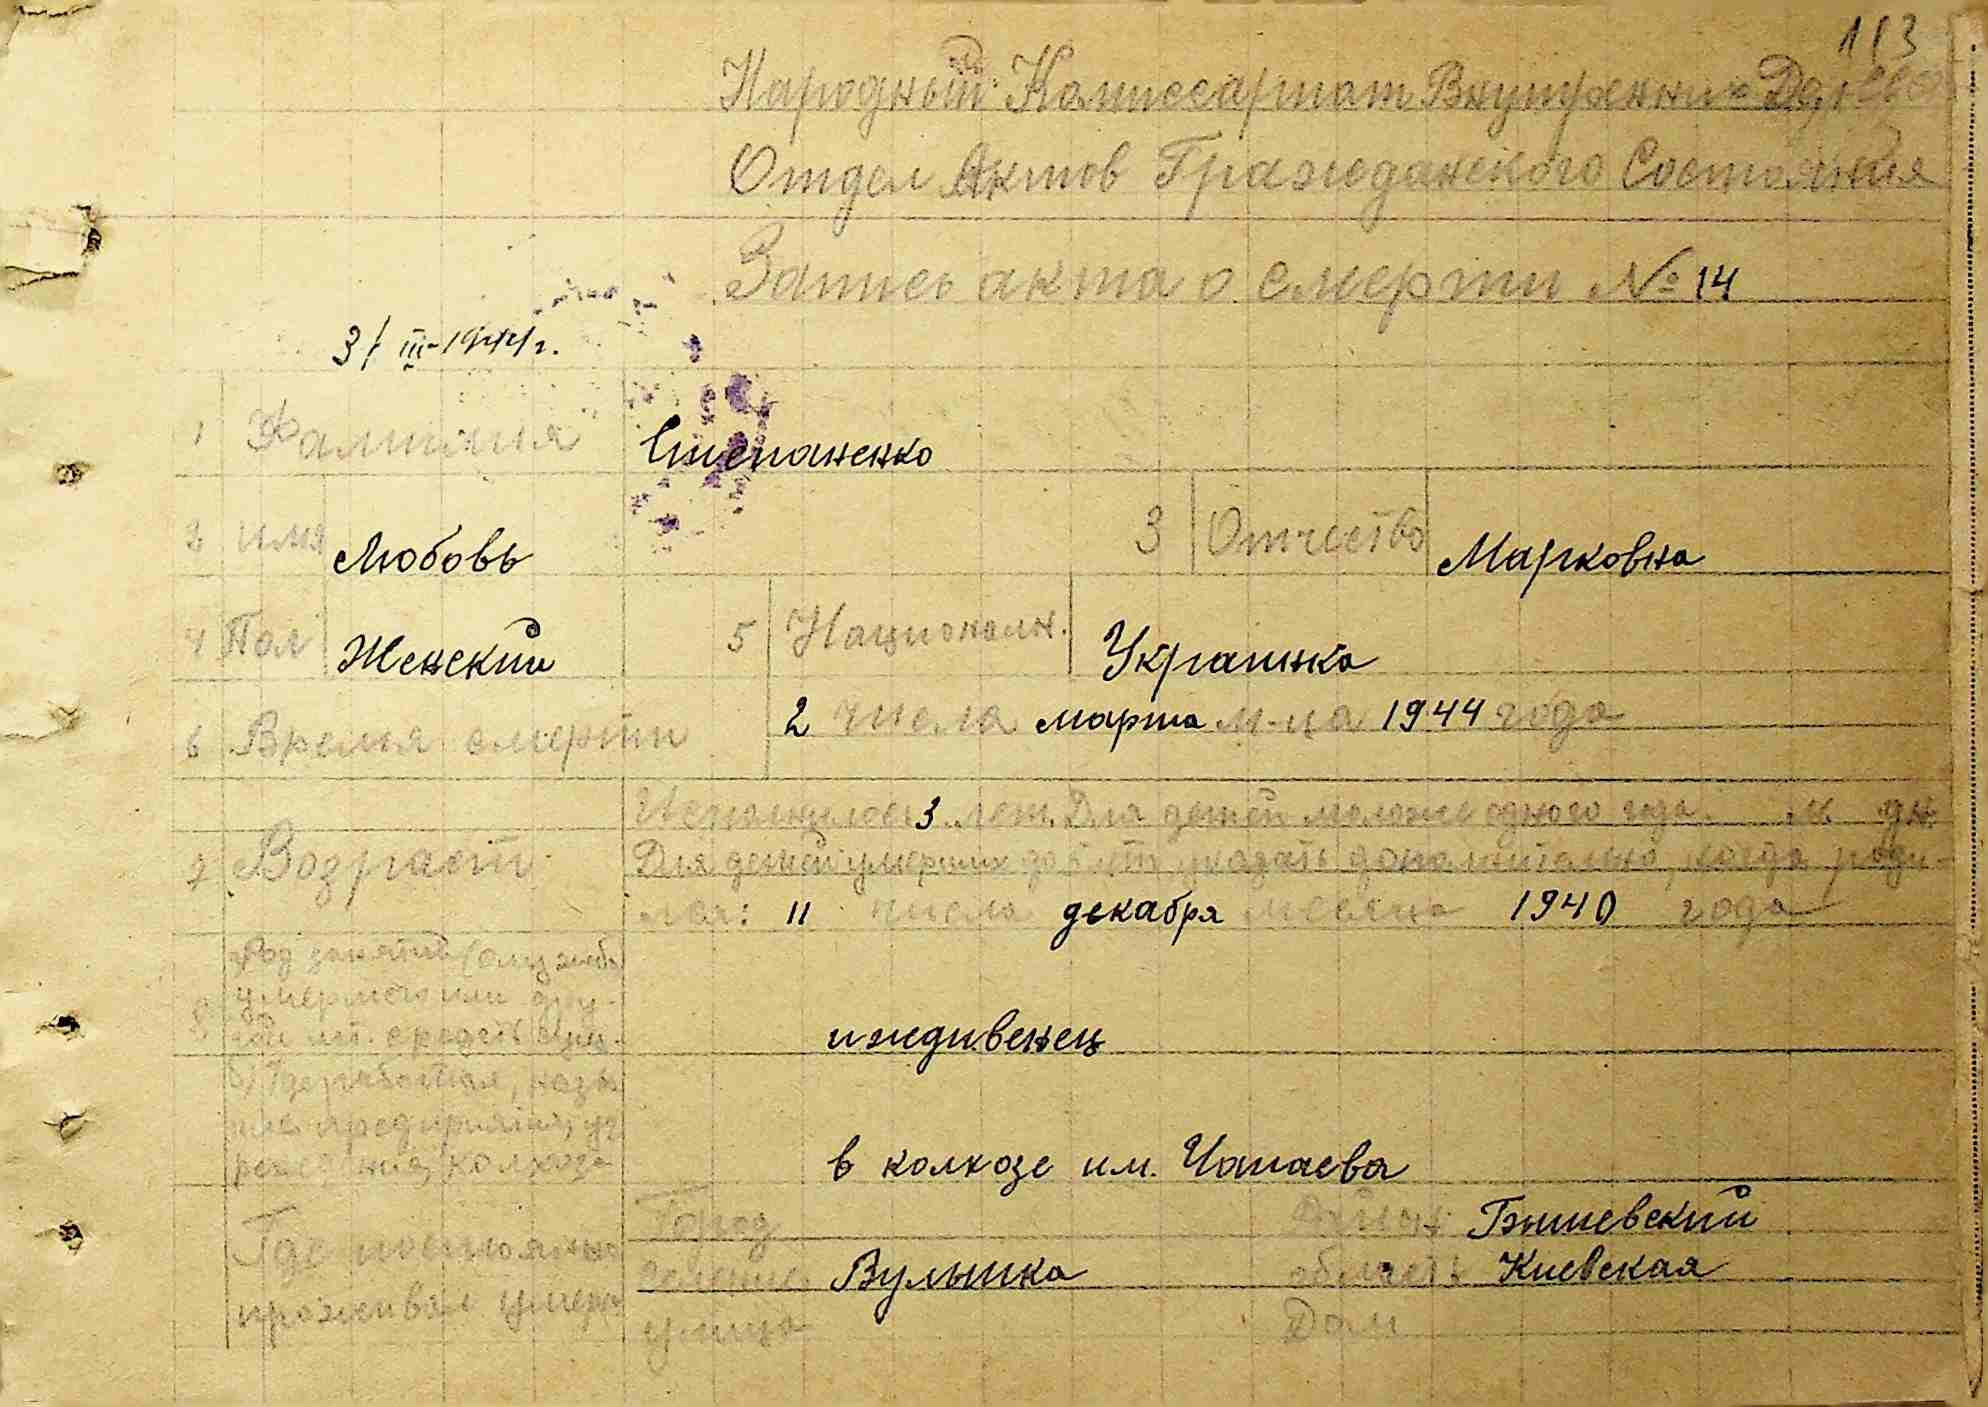 113
Народный Комиссариат Внутренних Дел
Отдел Актов Гражданского Состояния
Запись акта о смерти № 14
31 III-1944 г.
1 Фамилия Степаненко
2 имя Любовь 3 Отчество Марковна
4 Пол Женский 5 Национальн. Украинка
6 Время смерти 2 числа марта м-ца 1944 года
7 Возраст Исполнилось 3 лет. Для детей моложе одного года м. дн.
Для детей умерших до 5 лет указать дополнительно, когда роди-
лся: 11 числа декабря месяца 1940 года
Род занятий
умершего или дру-
иждивенец
б) Где работал, назва-
ние предприятия, уч
реждения, колхоза
в колхозе им. Чапаева
Где постоянно
проживал умерш
Город Район Бышевский
селение Вульшка область Киевская
улица Дом